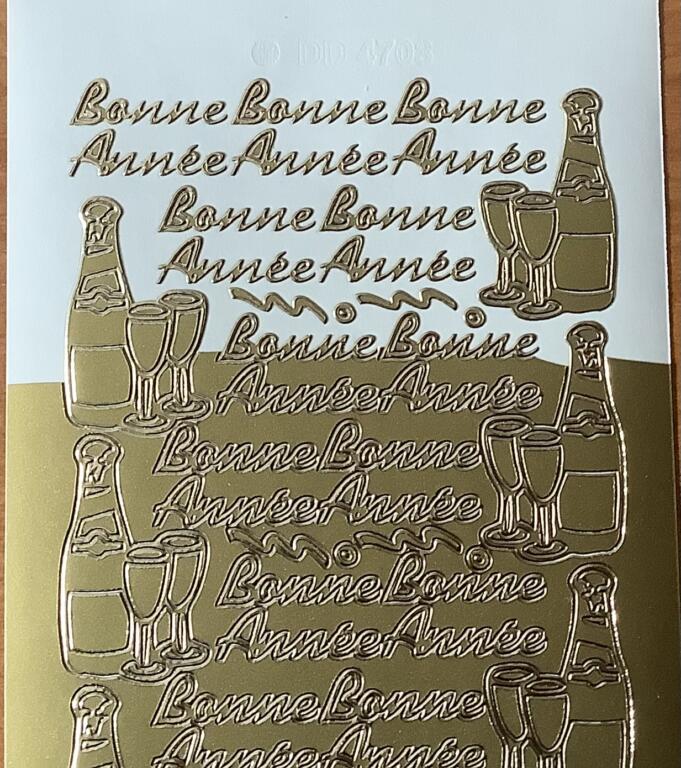 DD 4703
Bonne Bonne Bonne
Année Année Année
Bonne Bonne
Année Année
Bonne Bonne
Année Année
Bonne Bonne
Année Année
Bonne Bonne
Année Année
Bonne Bonne
Année Année